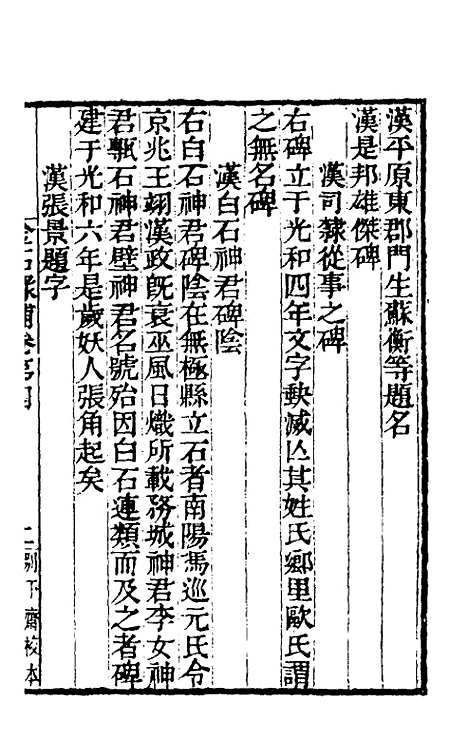 漢平原東郡門生蘇衡等題名
漢是邦雄傑碑
漢司隸從事之碑
右碑立于光和四年文字缺滅亾其姓氏鄉里歐氏謂
之無名碑
漢白石神君碑陰
右白石神君碑陰在無極縣立石者南陽馬巡元氏令
京兆王翊漢政旣衰巫風日熾所載務城神君李女神
君甄石神君壁神君名號殆因白石連類而及之者碑
建于光和六年是歲妖人張角起矣
漢張景題字
金石錄補卷第四
二別下齋校本